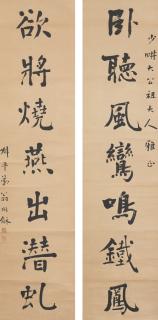 臥聽風鸞鳴鐵鳳
少畊大公祖大人雅正
欲將燒燕出潛虬
翁同龢